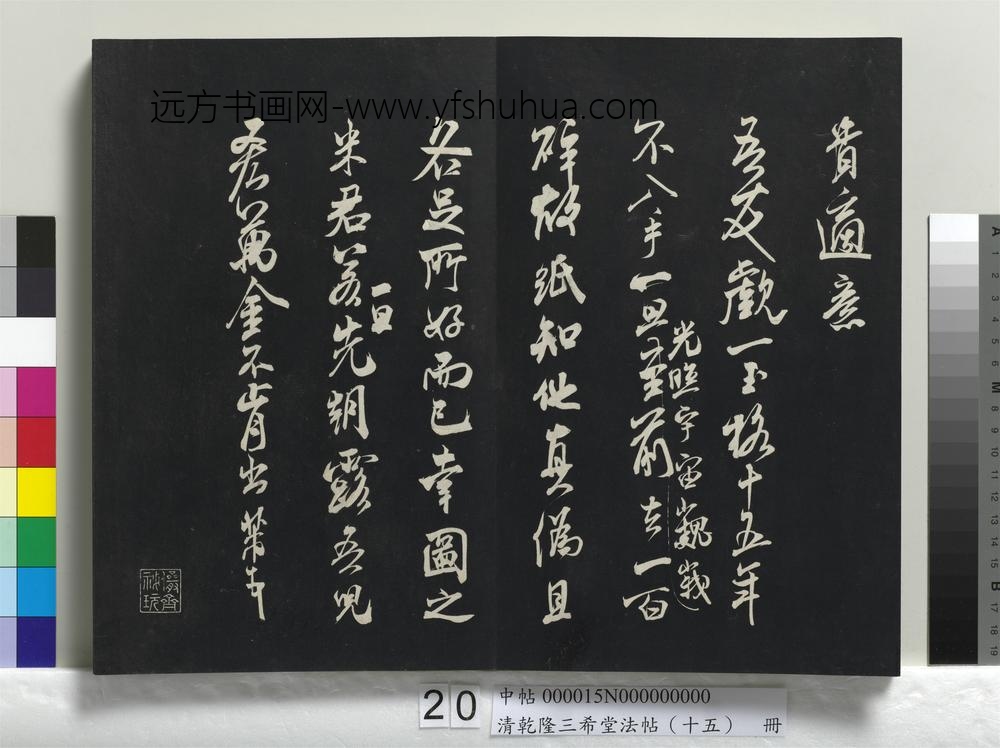 远方书画网-www.yfshuhua.com
貴適意
吾友覷一玉格十五年
不入手一旦光照宇宙巍峩至前去一百
碎故紙知他真偽且
各足所好而已幸圖之
米君若一旦先朝露吾兒
吝萬金不肯出芾頓首
儼齋秘玩
20
中帖 000015N000000000
清乾隆三希堂法帖（十五） 冊
A 1 2 3 4 5 6 M 8 9 10 11 12 13 14 15 B 17 18 19